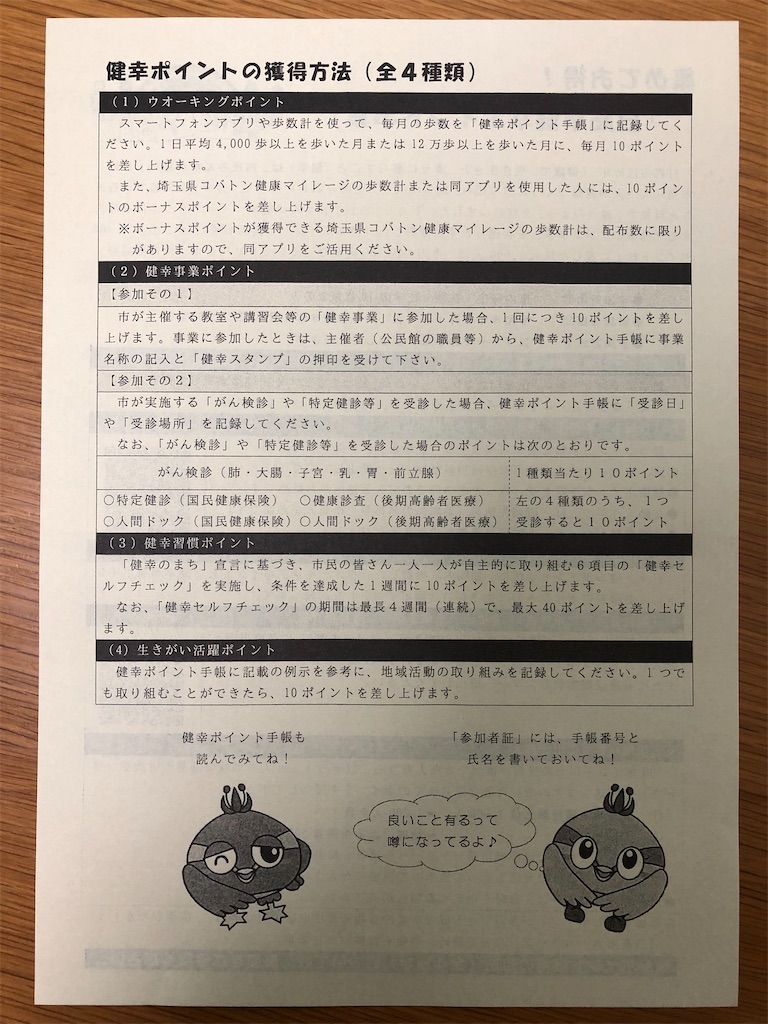 健幸ポイントの獲得方法（全４種類）
（1）ウオーキングポイント
スマートフォンアプリや歩数計を使って、毎月の歩数を「健幸ポイント手帳」に記録してく
ださい。1日平均 4,000 歩以上を歩いた月または 12 万歩以上を歩いた月に、毎月 10 ポイント
を差し上げます。
また、埼玉県コバトン健康マイレージの歩数計または同アプリを使用した人には、10 ポイン
トのボーナスポイントを差し上げます。
※ボーナスポイントが獲得できる埼玉県コバトン健康マイレージの歩数計は、配布数に限り
がありますので、同アプリをご活用ください。
（2）健幸事業ポイント
【参加その１】
市が主催する教室や講習会等の「健幸事業」に参加した場合、1回につき 10 ポイントを差し
上げます。事業に参加したときは、主催者（公民館の職員等）から、健幸ポイント手帳に事業
名称の記入と「健幸スタンプ」の押印を受けて下さい。
【参加その２】
市が実施する「がん検診」や「特定健診等」を受診した場合、健幸ポイント手帳に「受診日」
や「受診場所」を記録してください。
なお、「がん検診」や「特定健診等」を受診した場合のポイントは次のとおりです。
がん検診（肺・大腸・子宮・乳・胃・前立腺） 1種類当たり１０ポイント
○特定健診（国民健康保険） ○健康診査（後期高齢者医療） 左の４種類のうち、１つ
○人間ドック（国民健康保険）○人間ドック（後期高齢者医療） 受診すると１０ポイント
（3）健幸習慣ポイント
「健幸のまち」宣言に基づき、市民の皆さん一人一人が自主的に取り組む６項目の「健幸セ
ルフチェック」を実施し、条件を達成した１週間に 10 ポイントを差し上げます。
なお、「健幸セルフチェック」の期間は最長４週間（連続）で、最大 40 ポイントを差し上げ
ます。
（4）生きがい活躍ポイント
健幸ポイント手帳に記載の例示を参考に、地域活動の取り組みを記録してください。１つで
も取り組むことができたら、10 ポイントを差し上げます。
健幸ポイント手帳も
読んでみてね！
「参加者証」には、手帳番号と
氏名を書いておいてね！
良いこと有るって
噂になってるよ♪